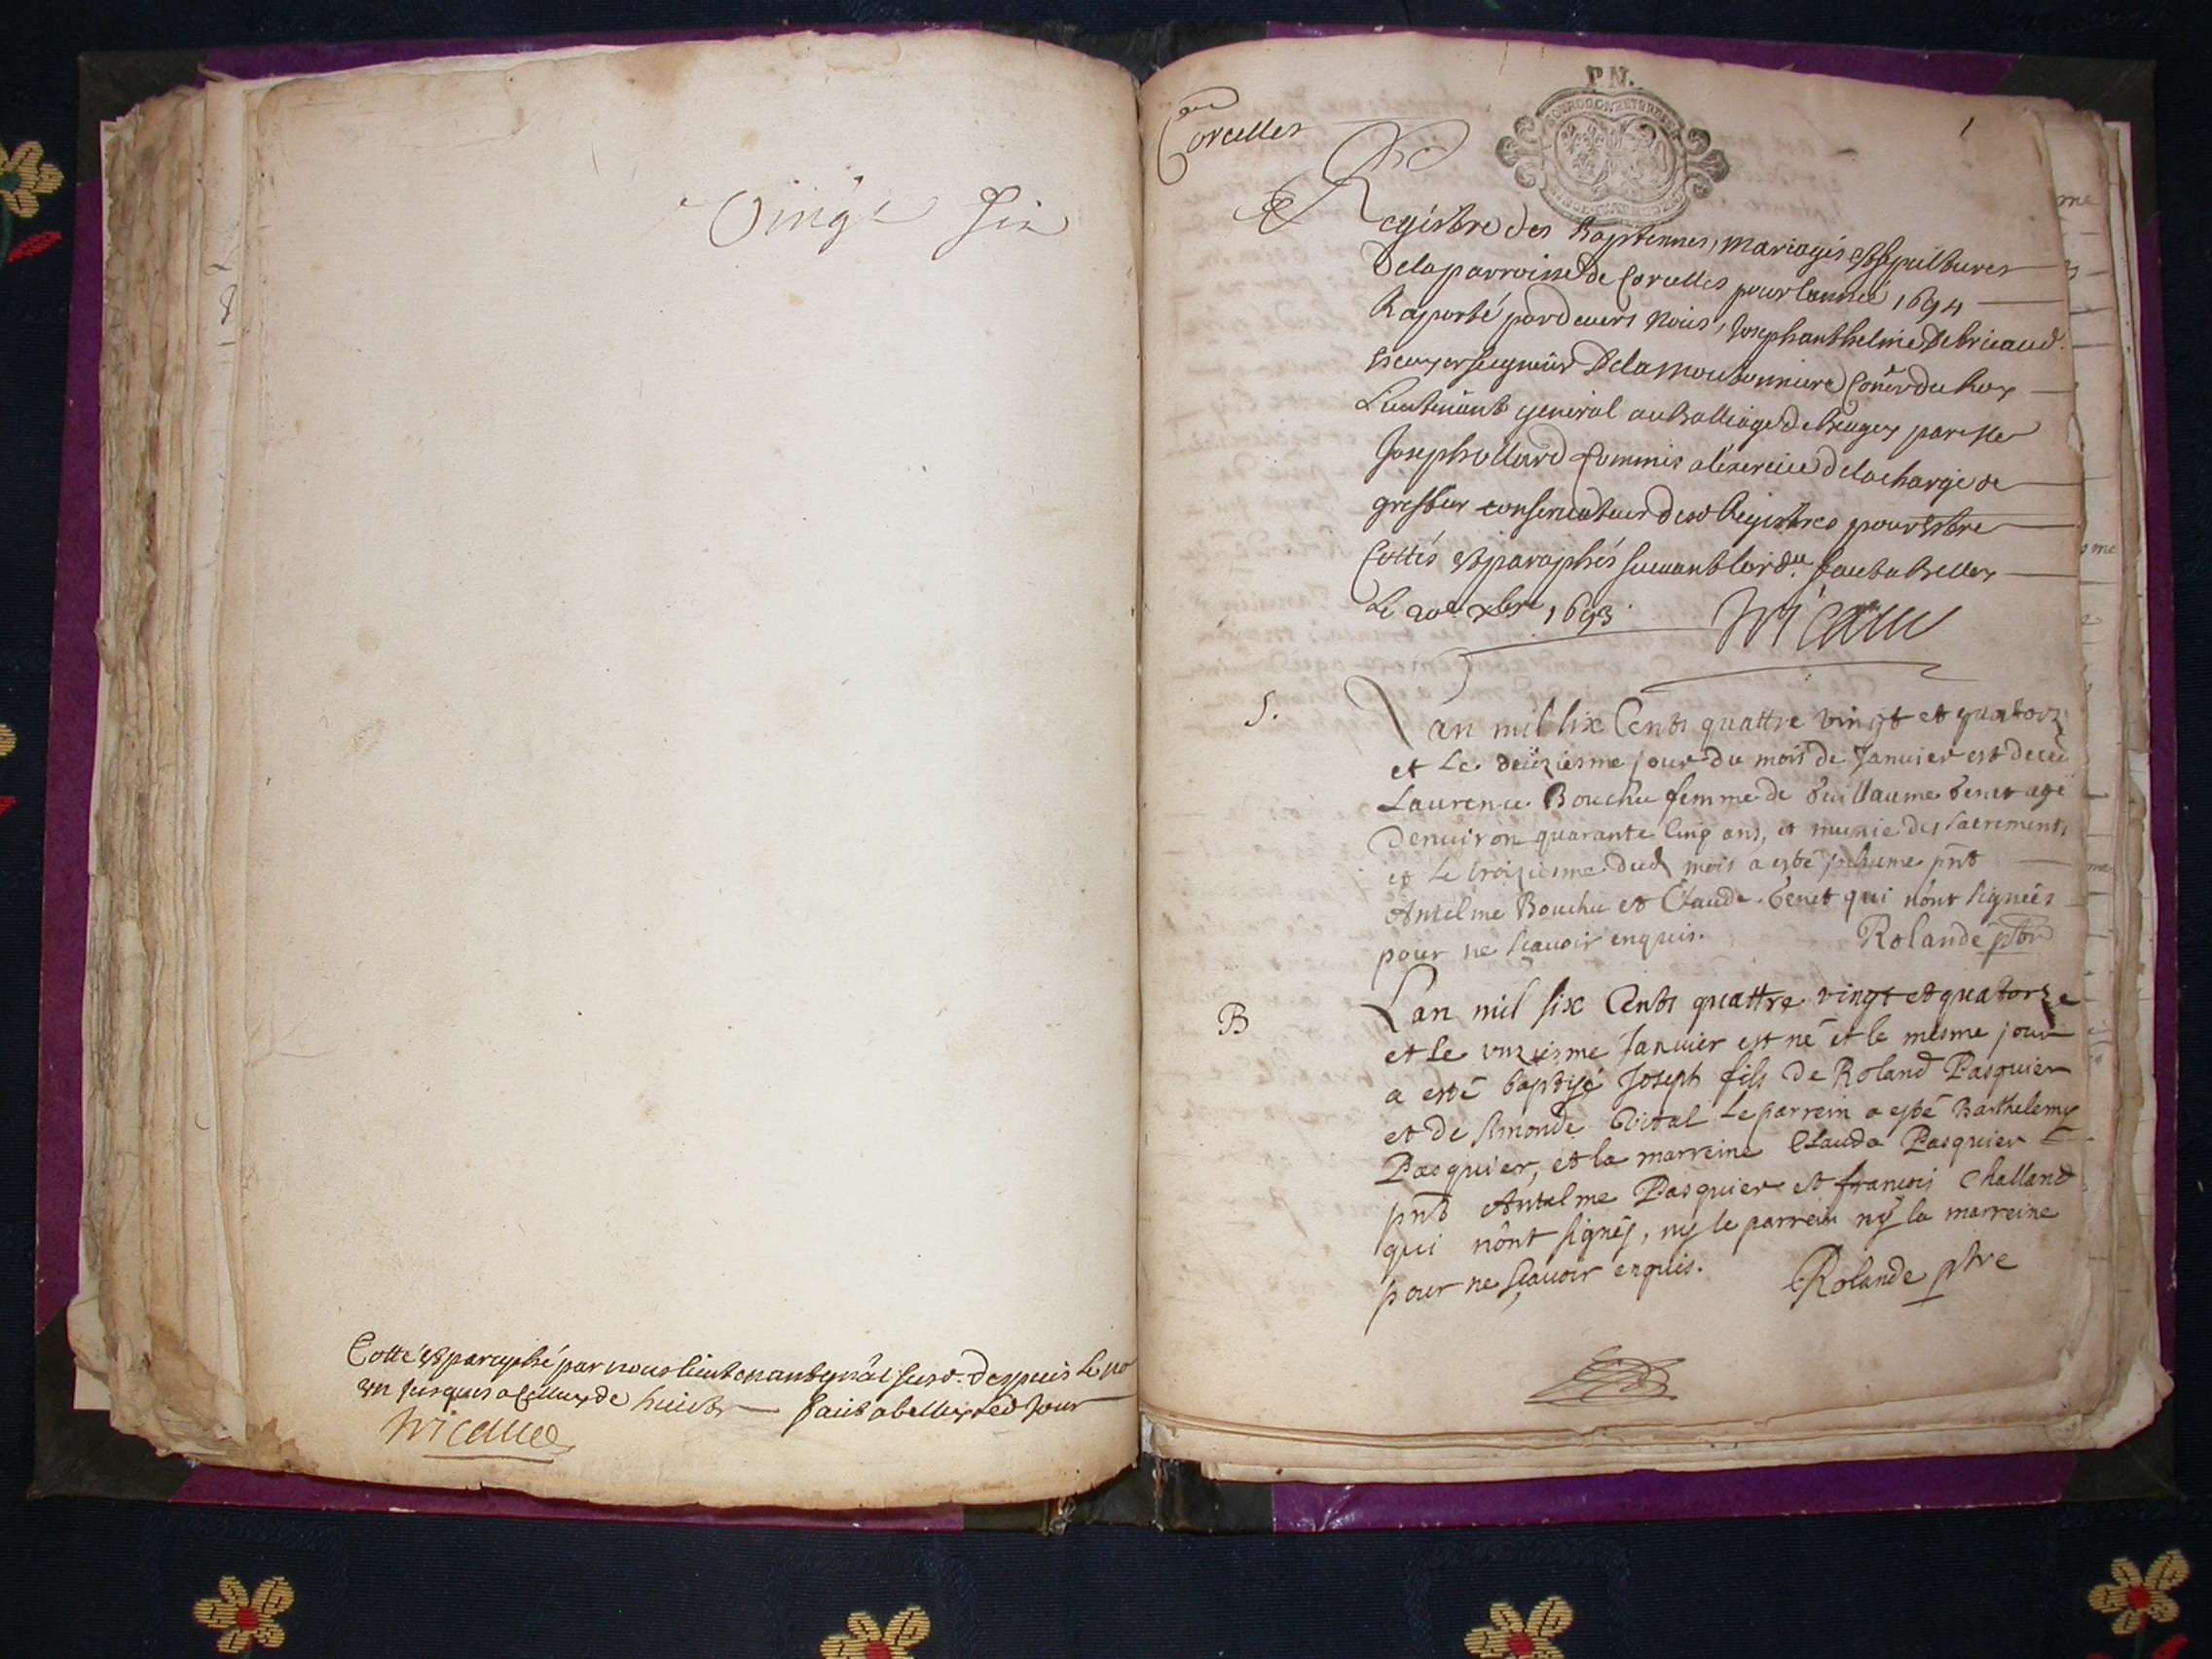 Vingt six
Cotté et paraphé par nous lieutenant gnâl susd. despuis le no
un jusques a celluy de huict faict a belley led jour
Corcelles
P.N.
1
Registre des Baptesmes, mariages et sepultures
De la parroisse de Corcelles pour lannée 1694
Raporté pardevers Nous, Joseph anthelme De
escuyer seigneur De la Moutonniere Conser du Roy
Lieutenant general au Balliage de Beugey par Me
Joseph ollard Commis a lexercice de la charge de
greffier conservateur desd Registres pour estre
Cottés et paraphés suivant lord. faict a Belley
Le 20e xbre 1693
S.
Lan mil six Cents quattre vingt et quatorz
et Le deüziesme jour du mois de Janvier est deced
Laurence Bouchu femme de Guillaume Genet agé
denuiron quarante Cinq ans, et munie des sacrements
et Le troiziesme dud mois a esté inhume pnt
Antelme Bouchu et Claude Genet qui nont signées
pour ne scauoir enquis. Rolande ptre
B
Lan mil six Cents quattre vingt et quatorze
et Le vnziesme Januier est né et le mesme jour
a esté baptisé Joseph fils de Roland Pasquier
et de Simonde Vital Le parrein a esté Barthelemy
Pasquier, et la marreine Clauda Pasquier
pnt Antelme Pasquier et francois Challand
qui nont signés, ny le parrein ny la marreine
pour ne scauoir enquis. Rolande ptre